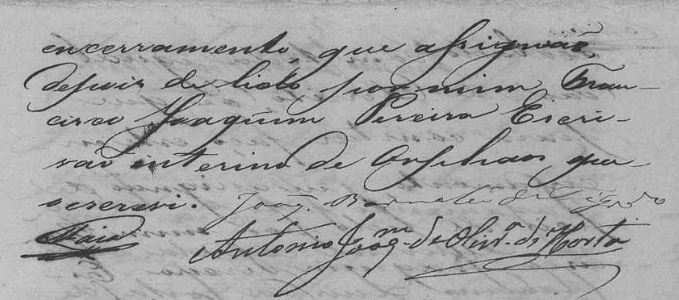 encerramento, que assignão,
depois de lido por mim Fran-
cisco Joaquim Pereira Escri-
vão interino de Orphaos que
o escrevi. Joaq.
Antonio Joaq.m de Oliv.ra d'Horta